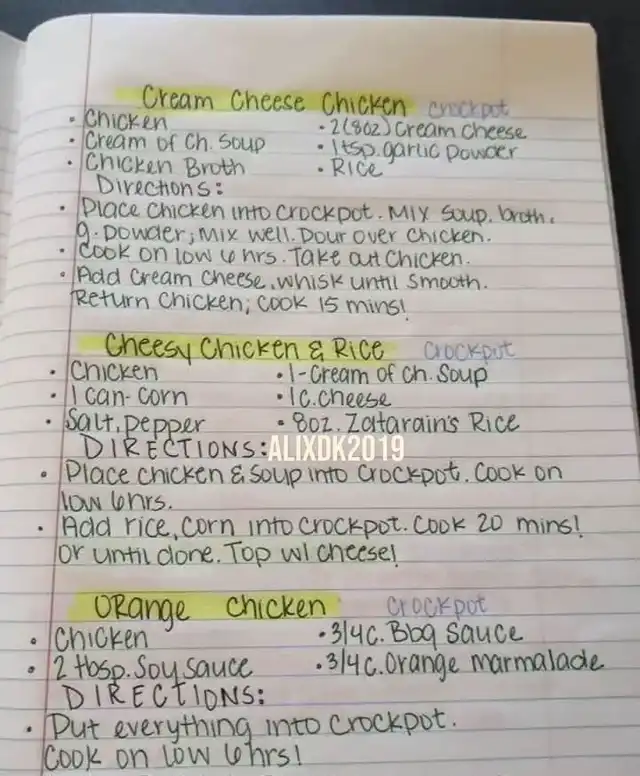 Cream Cheese Chicken crockpot
• Chicken • 2(8oz) Cream cheese
• Cream of Ch. Soup • 1 tsp. garlic powder
• Chicken Broth • Rice
Directions:
• Place chicken into crockpot. Mix soup, broth,
g. powder; Mix well. Pour over chicken.
• Cook on low 6 hrs. Take out Chicken.
• Add cream cheese, whisk until smooth.
Return chicken; cook 15 mins!
Cheesy Chicken & Rice crockput
• Chicken • 1-Cream of Ch. Soup
• 1 can-corn • 1c. cheese
• Salt, pepper • 8oz. Zatarain's Rice
DIRECTIONS: ALIXDK2019
• Place chicken & soup into crockpot. Cook on
low 6 hrs.
• Add rice, corn into crockpot. Cook 20 mins!
Or until done. Top w/ cheese!
ORange Chicken crockpot
• Chicken • 3/4 c. Bbq Sauce
• 2 tbsp. Soy Sauce • 3/4 c. Orange marmalade
DIRECTIONS:
• Put everything into crockpot.
Cook on low 6 hrs!